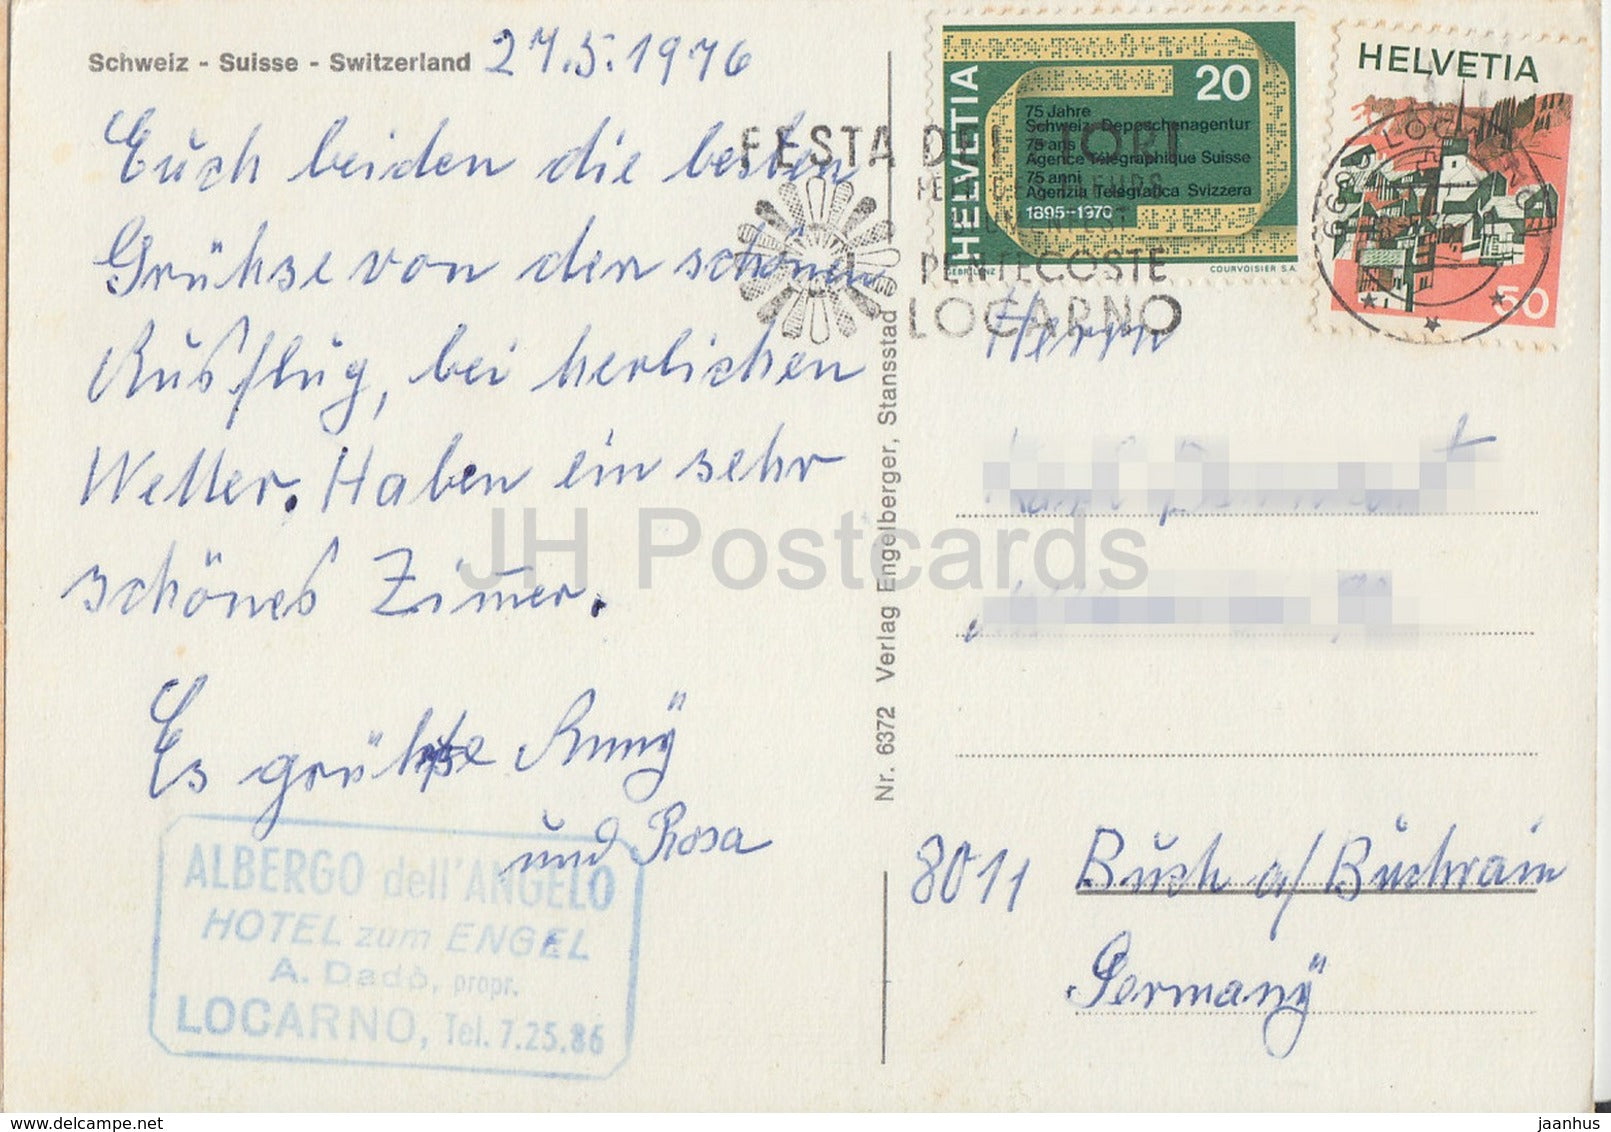 Schweiz - Suisse - Switzerland 27.5.1976
Euch beiden die besten
Grühse von den schönen
Ausflug, bei herlichen
Wetter. Haben ein sehr
schönes Zimmer.
Es grühse Anny
und Rosa
ALBERGO dell'ANGELO
HOTEL zum ENGEL
A. Dadò, propr.
LOCARNO, Tel. 7.25.86
Nr. 6372 Verlag Engelberger, Stansstad
FESTA DEI FIORI
PENTECOSTE
LOCARNO
HELVETIA
20
75 Jahre
Schweiz. Depeschenagentur
75 ans
Agence Télégraphique Suisse
75 anni
Agenzia Telegrafica Svizzera
1895-1970
COURVOISIER S.A.
HELVETIA
50
LOCARNO
Herrn
8011 Buch a/ Buchrain
Germany
JH Postcards
delcampe.net
jaanhus